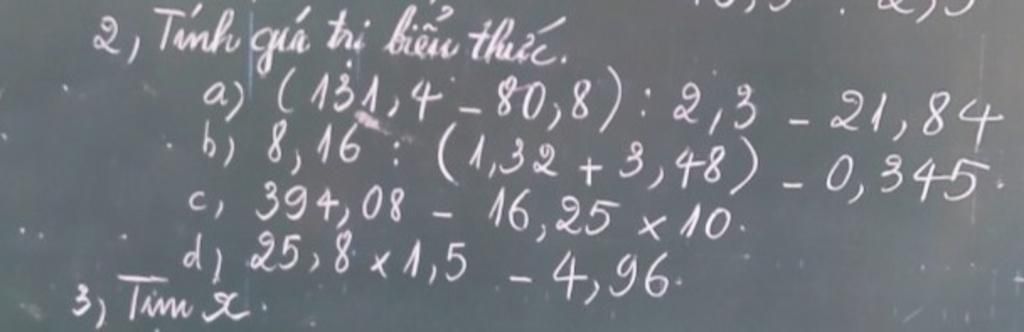 2, Tính giá trị biểu thức.
a) (131,4 - 80,8) : 2,3 - 21,84
b) 8,16 : (1,32 + 3,48) - 0,345.
c, 394,08 - 16,25 x 10.
d) 25,8 x 1,5 - 4,96.
3, Tìm x.